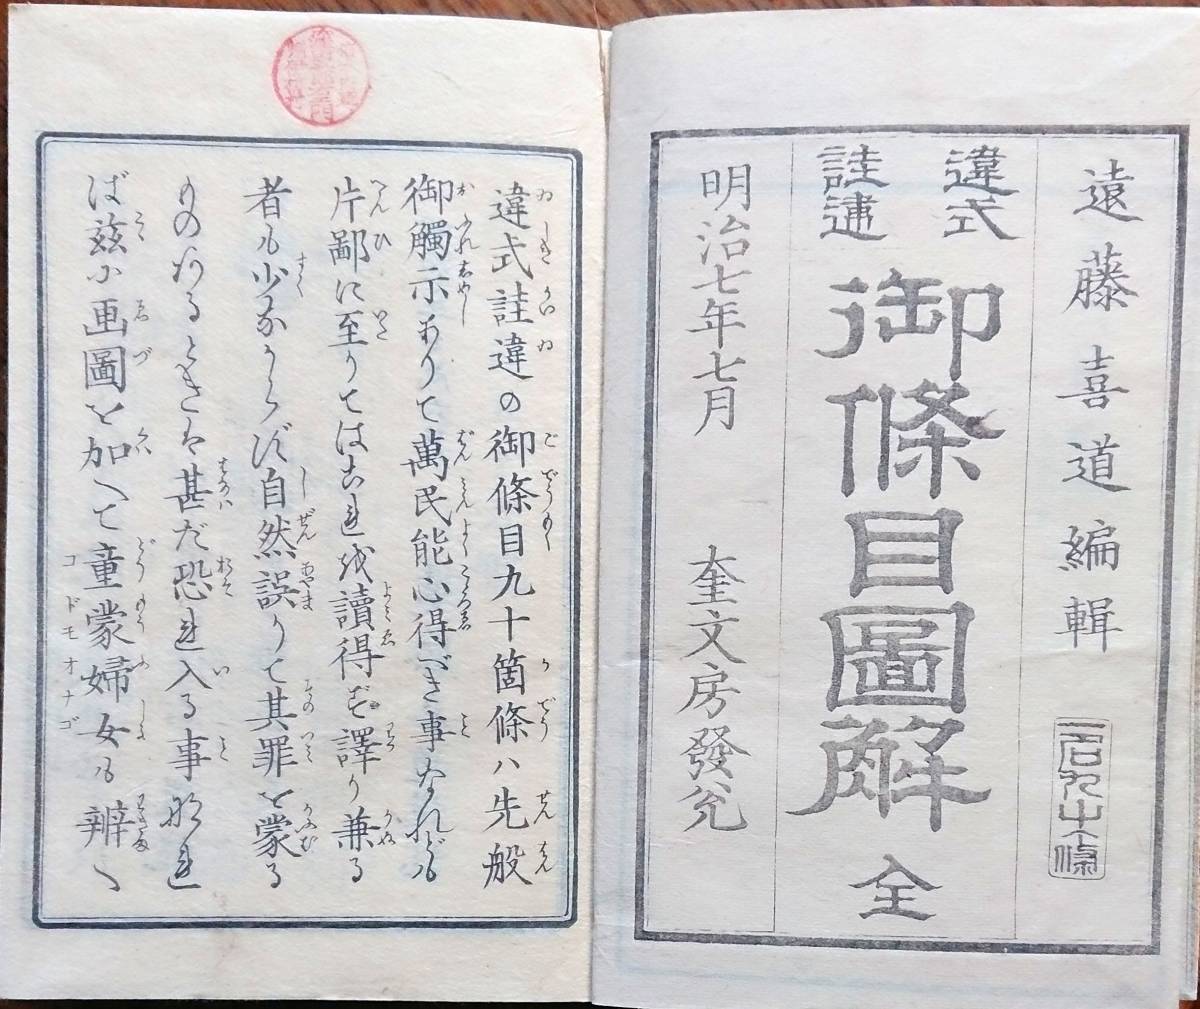 遠藤喜道編輯
違式
詿違
御條目圖解 全
明治七年七月 奎文房發兌
違式詿違の御條目九十箇條ハ先般
御觸示ありて萬民能心得べき事なれども
片鄙に至りてはこれを讀得ず譯り兼る
者も少なからず自然誤りて其罪を蒙る
ものあるときは甚だ恐れ入る事なれ
ば茲に画圖を加へて童蒙婦女も辨へ
コドモオナゴ